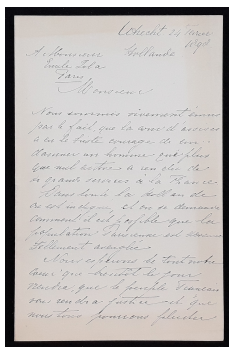 Utrecht 24 Février
1898
Hollande
A Monsieur
Emile Zola
Paris
Monsieur
Nous sommes vivement émus
par le fait que la cour d'assises
a eu le triste courage de con-
damner un homme qui plus
que nul autre a rendu de
si grands services à la France
Sans doute la
est et on se demande
comment il est possible que la
population Parisienne est
tellement aveuglée
Nous espérons de tout notre
coeur que bientôt le jour
viendra que le peuple Français
vous rendra justice et que
nous tous pourrons